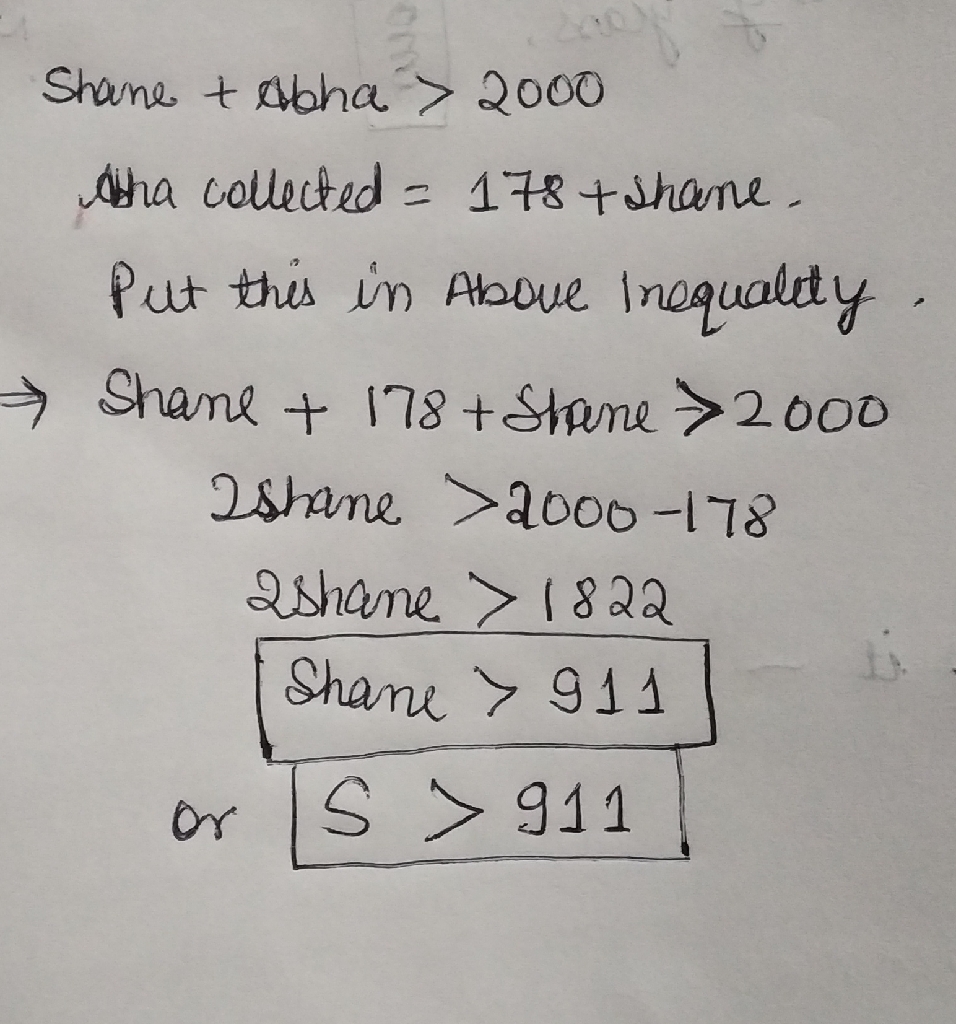 Shane + Abha > 2000
Abha collected = 178 + Shane.
Put this in Above Inequality.
⇒ Shane + 178 + Shane > 2000
2Shane > 2000 - 178
2Shane > 1822
Shane > 911
or S > 911